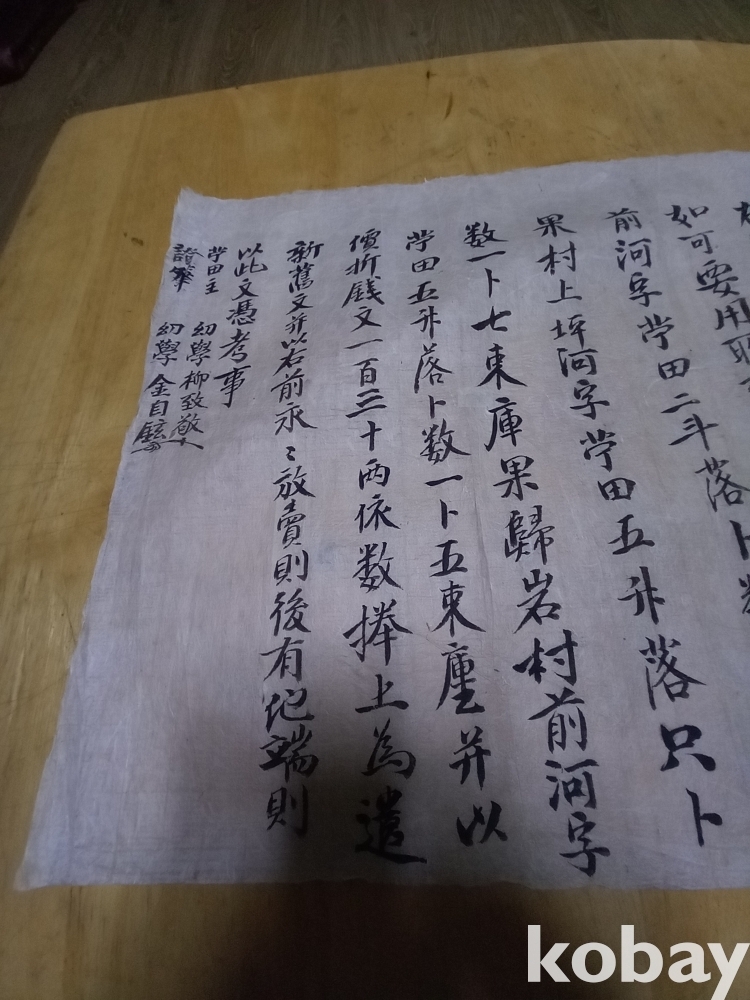 如可要用
前河字芧田二斗落卜数
果村上坪河字芧田五升落只卜
数一卜七束庫果歸岩村前河字
芧田五升落卜数一卜五束庫并以
價折錢文一百三十両依数捧上為遣
新舊文并以右前永〻放賣則後有他端則
以此文憑考事
芧田主 幼學柳致敬
證筆 幼學金自鉉
kobay